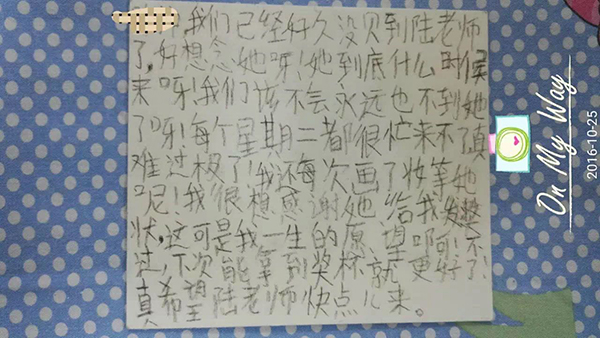 我们已经好久没贝到陆老师
了,好想念她呀!她到底什么时候
来呀!我们该不会永远也不到她
了呀!每个星期二都很忙来不了真
难过极了!我还每次画了妆等她
呢!我很想感谢她给我发奖
状,这可是我一生的愿望啊!不
过,下次能拿到奖杯就更好了!
真希望陆老师快点儿来。
On My Way
2016-10-25